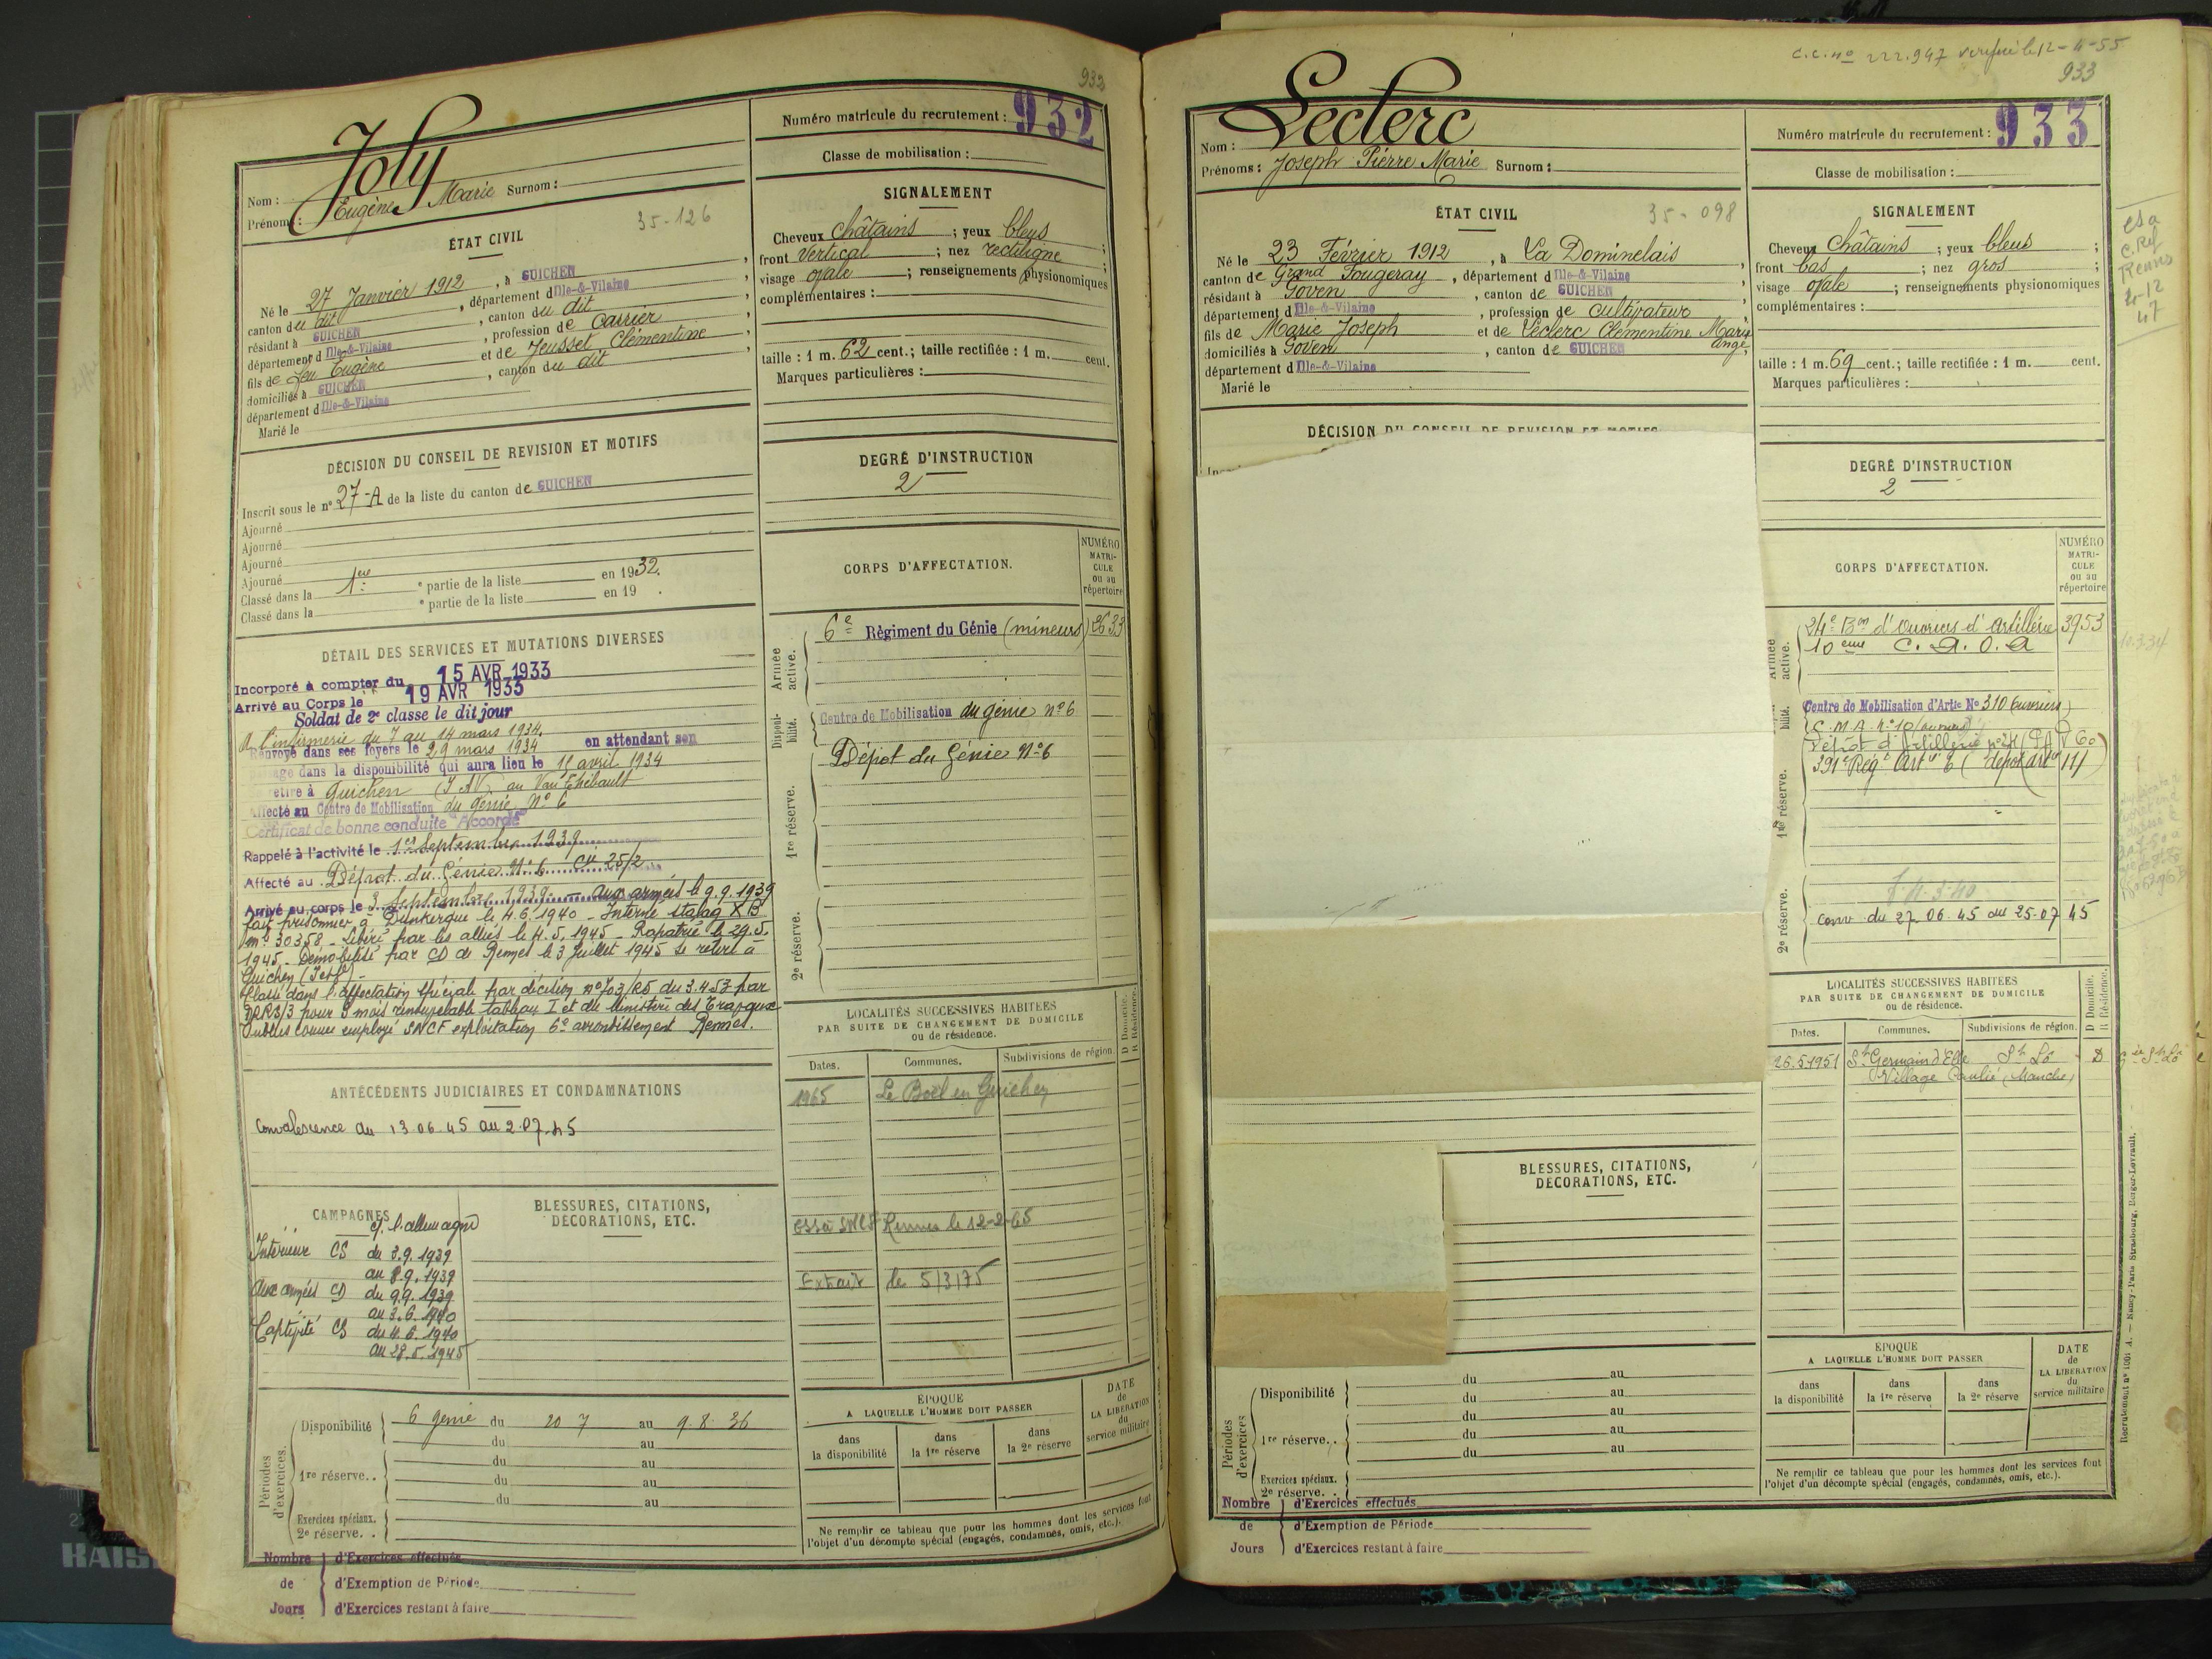 932
Joly
Nom :
Prénoms : Eugène Marie Surnom :
35-126
ÉTAT CIVIL
Né le 27 Janvier 1912, à GUICHEN,
canton du dit, département d'Ille-&-Vilaine,
résidant à GUICHEN, canton du dit,
département d'Ille-&-Vilaine, profession de Carrier,
fils de feu Eugène et de Jeusset Clémentine,
domiciliés à GUICHEN, canton du dit
département d'Ille-&-Vilaine
Marié le
DÉCISION DU CONSEIL DE REVISION ET MOTIFS
Inscrit sous le n° 27-A de la liste du canton de GUICHEN
Ajourné
Ajourné
Ajourné
Ajourné
Classé dans la 1ère e partie de la liste en 1932.
Classé dans la e partie de la liste en 19 .
DÉTAIL DES SERVICES ET MUTATIONS DIVERSES
Incorporé à compter du 15 AVR 1933
Arrivé au Corps le 19 AVR 1933
Soldat de 2e classe le dit jour
A l'infirmerie du 7 au 14 mars 1934.
Renvoyé dans ses foyers le 29 mars 1934 en attendant son
passage dans la disponibilité qui aura lieu le 15 avril 1934
Se retire à Guichen (I & V) au Vau Thébault
Affecté au Centre de Mobilisation du génie N° 6
Certificat de bonne conduite "Accordé"
Rappelé à l'activité le 1er Septembre 1939
Affecté au Dépôt du Génie N° 6 Cie 25/2
Arrivé au corps le 3 Septembre 1939 - aux armées le 9.9.1939
fait prisonnier à Dunkerque le 4.6.1940 - Interné stalag X B
n° 30358 - Libéré par les alliés le 4.5.1945 - Rapatrié le 29.5.
1945 - Démobilisé par CD de Rennes le 3 Juillet 1945 se retire à
Guichen
Classé dans l'affectation spéciale par décision n° 703/R5 du 3.4.53 par
DRRS/3 pour 3 mois renouvelable tableau I et du Ministère des Travaux
Publics comme employé SNCF exploitation 6e arrondissement Rennes.
ANTÉCÉDENTS JUDICIAIRES ET CONDAMNATIONS
Convalescence du 13.06.45 au 2.07.45
CAMPAGNES
c/ l'allemagne
Intérieur CS du 3.9.1939
au 8.9.1939
Aux armées CD du 9.9.1939
au 3.6.1940
Captivité CS du 4.6.1940
au 28.5.1945
BLESSURES, CITATIONS,
DÉCORATIONS, ETC.
Périodes d'exercices.
Disponibilité 6 génie du 20 7 au 9.8.36
du au
1re réserve. . du au
du au
du au
Exercices spéciaux.
2e réserve. .
Nombre de Jours
d'Exercices effectués
d'Exemption de Période
d'Exercices restant à faire
Numéro matricule du recrutement : 932
Classe de mobilisation :
SIGNALEMENT
Cheveux Châtains ; yeux bleus ;
front Vertical ; nez rectiligne ;
visage ovale ; renseignements physionomiques
complémentaires :
taille : 1 m. 62 cent.; taille rectifiée : 1 m. cent.
Marques particulières :
DEGRÉ D'INSTRUCTION
2
CORPS D'AFFECTATION.
NUMÉRO MATRICULE ou au répertoire
Armée active.
6e Régiment du Génie (mineurs) 2633
Disponibilité.
Centre de Mobilisation du génie n° 6
1re réserve.
Dépôt du Génie N° 6
2e réserve.
LOCALITÉS SUCCESSIVES HABITÉES
PAR SUITE DE CHANGEMENT DE DOMICILE
ou de résidence.
Dates. Communes. Subdivisions de région. D Domicile. R Résidence.
1965 Le Boël en Guichen
SNCF Rennes le 12-2-65
Extrait le 5/3/75
ÉPOQUE
A LAQUELLE L'HOMME DOIT PASSER
dans la disponibilité
dans la 1re réserve
dans la 2e réserve
DATE de LA LIBÉRATION du service militaire
Ne remplir ce tableau que pour les hommes dont les services font
l'objet d'un décompte spécial (engagés, condamnés, omis, etc.).
C.C. n° 222.947 vérifié le 12-4-55
933
Leclerc
Nom :
Prénoms : Joseph Pierre Marie Surnom :
ÉTAT CIVIL
35-098
Né le 23 Février 1912, à La Dominelais,
canton de Grand Fougeray, département d'Ille-&-Vilaine
résidant à Goven, canton de GUICHEN,
département d'Ille-&-Vilaine, profession de Cultivateur,
fils de Marie Joseph et de Leclerc Clémentine Marie Ange,
domiciliés à Goven, canton de GUICHEN
département d'Ille-&-Vilaine
Marié le
DÉCISION DU CONSEIL DE REVISION ET MOTIFS
BLESSURES, CITATIONS,
DÉCORATIONS, ETC.
Périodes d'exercices
Disponibilité du au
du au
du au
1re réserve. . du au
du au
Exercices spéciaux.
2e réserve. .
Nombre de Jours
d'Exercices effectués
d'Exemption de Période
d'Exercices restant à faire
Numéro matricule du recrutement : 933
Classe de mobilisation :
SIGNALEMENT
Cheveux Châtains ; yeux bleus ;
front bas ; nez gros ;
visage ovale ; renseignements physionomiques
complémentaires :
taille : 1 m. 69 cent.; taille rectifiée : 1 m. cent.
Marques particulières :
DEGRÉ D'INSTRUCTION
2
CORPS D'AFFECTATION.
NUMÉRO MATRICULE ou au répertoire
Armée active.
24e Bon d'Ouvriers d'Artillerie 3953
10ème C. A. O. A
Centre de Mobilisation d'Artie N° 310 (ouvriers)
C.M.A. n° 10 (ouvriers)
Dépôt d'Artillerie n° 24
391e Régt Arty 6 (dépôt art
1re réserve.
2e réserve.
conv du 27.06.45 au 25.07 45
LOCALITÉS SUCCESSIVES HABITÉES
PAR SUITE DE CHANGEMENT DE DOMICILE
ou de résidence.
Dates. Communes. Subdivisions de région. D Domicile. R Résidence.
26.5.1951 St Germain d'Elle St Lô D
Village Paulié (Manche)
ÉPOQUE
A LAQUELLE L'HOMME DOIT PASSER
dans la disponibilité
dans la 1re réserve
dans la 2e réserve
DATE de LA LIBÉRATION du service militaire
Ne remplir ce tableau que pour les hommes dont les services font
l'objet d'un décompte spécial (engagés, condamnés, omis, etc.).
C.Ref
Rennes
47
10.3.34